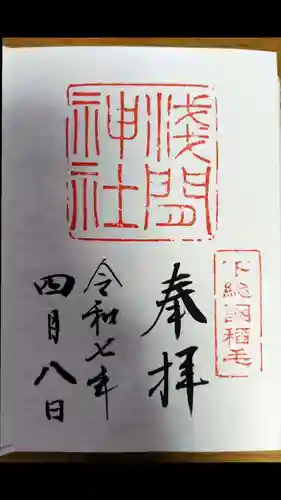 下総國稲毛
奉拝
浅間
神社
令和七年
四月八日